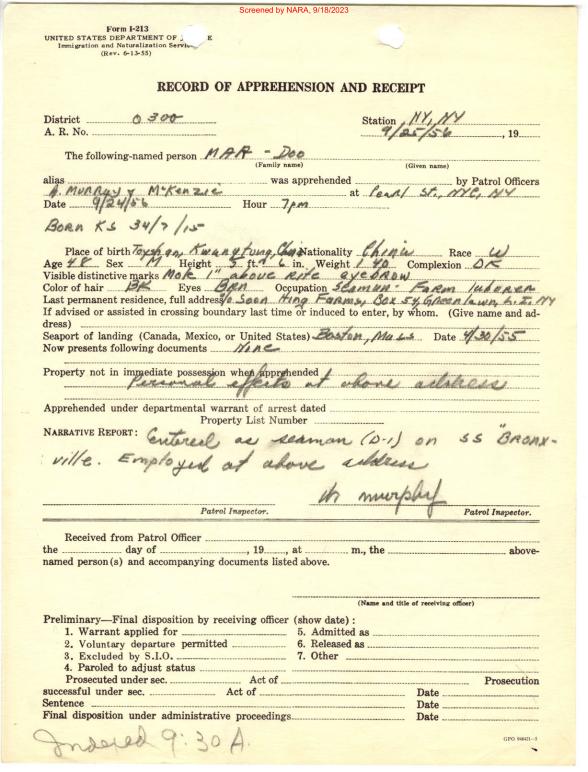 Screened by NARA, 9/18/2023
Form I-213
UNITED STATES DEPARTMENT OF J E
Immigration and Naturalization Servi
(Rev. 6-13-55)
RECORD OF APPREHENSION AND RECEIPT
District 0300 Station NY, NY
A. R. No. 9/25/56, 19
The following-named person MAR - Doo
(Family name) (Given name)
alias was apprehended by Patrol Officers
Murray & McKenzie at Pearl St., NYC, NY
Date 9/24/56 Hour 7pm
Born KS 34/7/15
Place of birth Toyshan, Kwangtung, China Nationality China Race W
Age 48 Sex M Height 5 ft. 6 in. Weight 140 Complexion DK
Visible distinctive marks Mole 1" above rite eyebrow
Color of hair BK Eyes BRN Occupation Seaman - Farm laborer
Last permanent residence, full address c/o Soon Hing Farms, Box 54, Greenlawn, L.I. NY
If advised or assisted in crossing boundary last time or induced to enter, by whom. (Give name and ad-
dress)
Seaport of landing (Canada, Mexico, or United States) Boston, Mass Date 4/30/55
Now presents following documents None
Property not in immediate possession when apprehended
Personal effects at above address
Apprehended under departmental warrant of arrest dated
Property List Number
NARRATIVE REPORT: Entered as seaman (D-1) on SS "Bronx-
ville. Employed at above address
murphy
Patrol Inspector. Patrol Inspector.
Received from Patrol Officer
the day of , 19 , at m., the above-
named person(s) and accompanying documents listed above.
(Name and title of receiving officer)
Preliminary—Final disposition by receiving officer (show date):
1. Warrant applied for 5. Admitted as
2. Voluntary departure permitted 6. Released as
3. Excluded by S.I.O. 7. Other
4. Paroled to adjust status
Prosecuted under sec. Act of Prosecution
successful under sec. Act of Date
Sentence Date
Final disposition under administrative proceedings Date
Indexed 9:30 A.